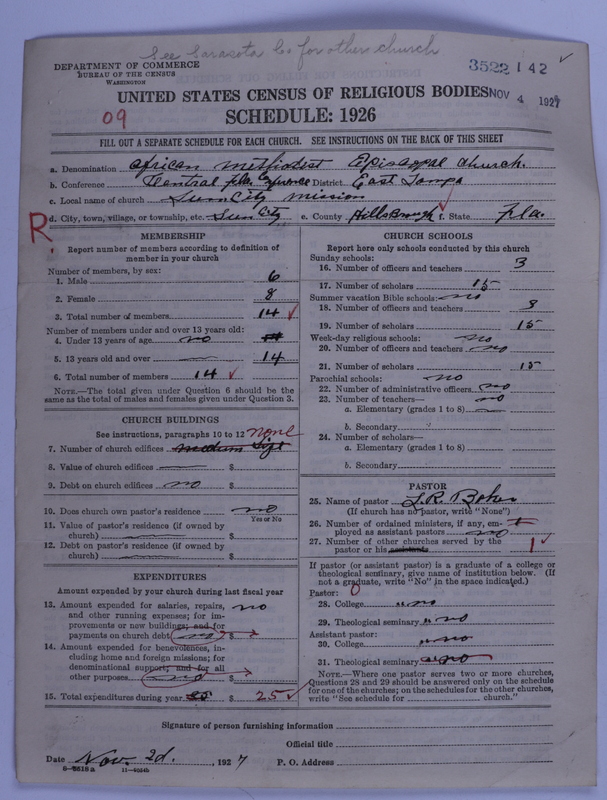 See Sarasota Co for other church
DEPARTMENT OF COMMERCE
BUREAU OF THE CENSUS
WASHINGTON
3522 142
UNITED STATES CENSUS OF RELIGIOUS BODIES
NOV 4 1927
09
SCHEDULE: 1926
FILL OUT A SEPARATE SCHEDULE FOR EACH CHURCH. SEE INSTRUCTIONS ON THE BACK OF THIS SHEET
a. Denomination African Methodest Episcopal Church.
b. Conference Central Fla. Conference District East Tampa
c. Local name of church Sun City Mission
d. City, town, village, or township, etc. Sun City e. County Hillsbrough f. State Fla.
R.
MEMBERSHIP
Report number of members according to definition of member in your church
Number of members, by sex:
1. Male 6
2. Female 8
3. Total number of members 14
Number of members under and over 13 years old:
4. Under 13 years of age no
5. 13 years old and over 14
6. Total number of members 14
NOTE.—The total given under Question 6 should be the same as the total of males and females given under Question 3.
CHURCH BUILDINGS
See instructions, paragraphs 10 to 12 none
7. Number of church edifices medium size
8. Value of church edifices $
9. Debt on church edifices no $
10. Does church own pastor's residence no
Yes or No
11. Value of pastor's residence (if owned by church) $
12. Debt on pastor's residence (if owned by church) $
EXPENDITURES
Amount expended by your church during last fiscal year
13. Amount expended for salaries, repairs, and other running expenses; for improvements or new buildings; and for payments on church debt no $
no
14. Amount expended for benevolences, including home and foreign missions; for denominational support; and for all other purposes no $
15. Total expenditures during year $ 25
CHURCH SCHOOLS
Report here only schools conducted by this church
Sunday schools:
16. Number of officers and teachers 3
17. Number of scholars 15
Summer vacation Bible schools: no
18. Number of officers and teachers 3
19. Number of scholars 15
Week-day religious schools: no
20. Number of officers and teachers no
21. Number of scholars 15
Parochial schools: no
22. Number of administrative officers no
23. Number of teachers— no
a. Elementary (grades 1 to 8)
b. Secondary
24. Number of scholars—
a. Elementary (grades 1 to 8)
b. Secondary
PASTOR
25. Name of pastor
(If church has no pastor, write "None")
26. Number of ordained ministers, if any, employed as assistant pastors no
27. Number of other churches served by the pastor or his assistants 1
If pastor (or assistant pastor) is a graduate of a college or theological seminary, give name of institution below. (If not a graduate, write "No" in the space indicated.)
Pastor: 0
28. College " no
29. Theological seminary " no
Assistant pastor:
30. College " no
31. Theological seminary " no
NOTE.—Where one pastor serves two or more churches, Questions 28 and 29 should be answered only on the schedule for one of the churches; on the schedules for the other churches, write "See schedule for church."
Signature of person furnishing information
Official title
Date Nov. 2d. , 1927 P. O. Address
11—9954b